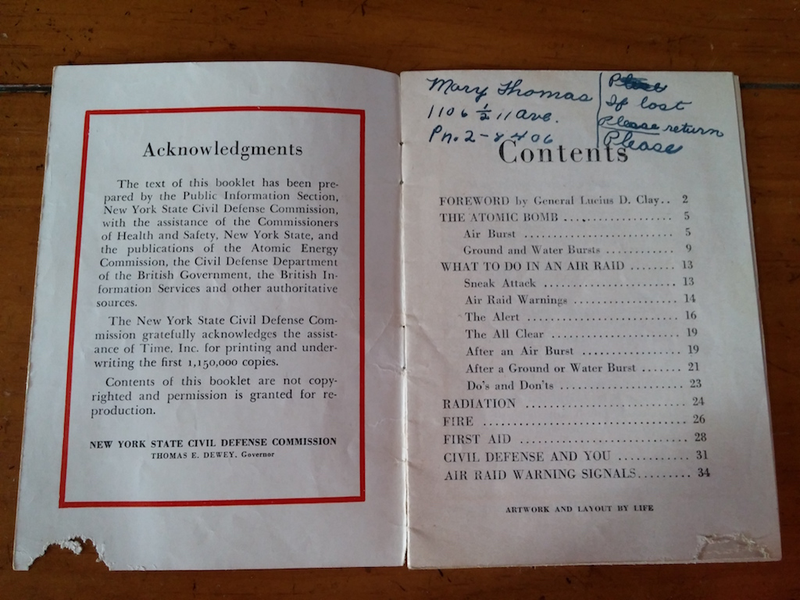 Acknowledgments
The text of this booklet has been pre-
pared by the Public Information Section,
New York State Civil Defense Commission,
with the assistance of the Commissioners
of Health and Safety, New York State, and
the publications of the Atomic Energy
Commission, the Civil Defense Department
of the British Government, the British In-
formation Services and other authoritative
sources.
The New York State Civil Defense Com-
mission gratefully acknowledges the assist-
ance of Time, Inc. for printing and under-
writing the first 1,150,000 copies.
Contents of this booklet are not copy-
righted and permission is granted for re-
production.
NEW YORK STATE CIVIL DEFENSE COMMISSION
THOMAS E. DEWEY, Governor
Mary Thomas
1106 ½ 11 ave.
Pn. 2-8406
If lost
Please return
Please
Contents
FOREWORD by General Lucius D. Clay.. 2
THE ATOMIC BOMB .................... 5
Air Burst ........................ 5
Ground and Water Bursts ............ 9
WHAT TO DO IN AN AIR RAID ........ 13
Sneak Attack ...................... 13
Air Raid Warnings .................. 14
The Alert ........................ 16
The All Clear ...................... 19
After an Air Burst .................. 19
After a Ground or Water Burst ........ 21
Do's and Don'ts .................... 23
RADIATION .......................... 24
FIRE ................................ 26
FIRST AID .......................... 28
CIVIL DEFENSE AND YOU .............. 31
AIR RAID WARNING SIGNALS......... 34
ARTWORK AND LAYOUT BY LIFE